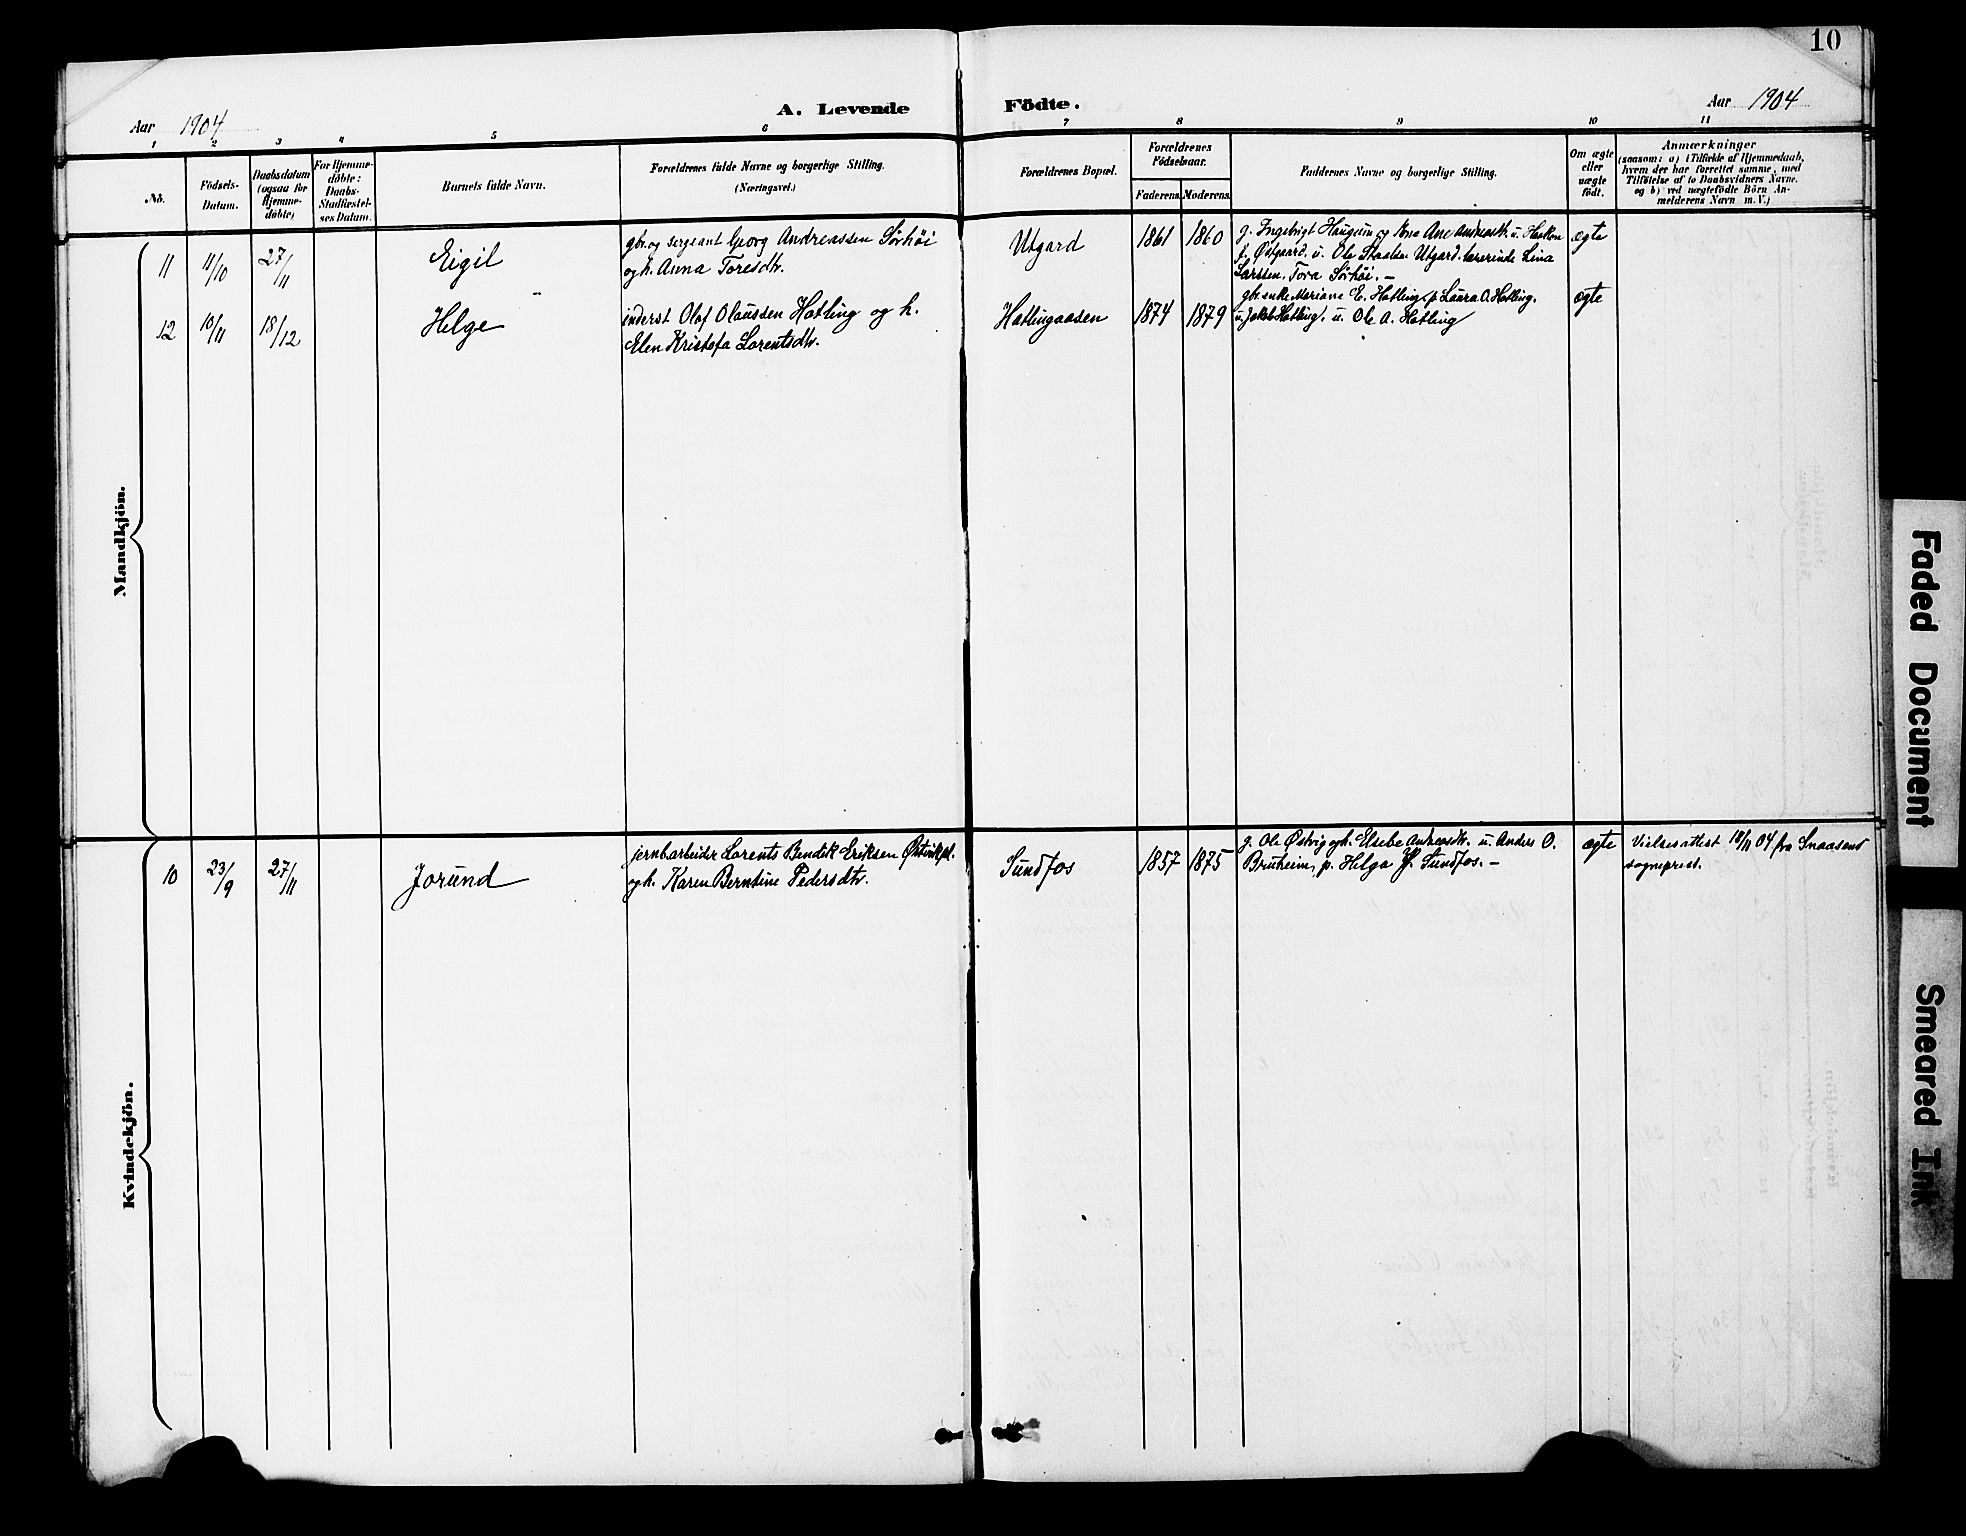 10
Aar 1904
A. Levende Födte.
Aar 1904
1 2 3 4 5 6 7 8 9 10 11
No.
Födsels-
Datum.
Daabsdatum
(ogsaa for
Hjemme-
döbte)
For Hjemme-
döbte:
Daabs-
Stadfæstel-
ses Datum.
Barnets fulde Navn.
Forældrenes fulde Navne og borgerlige Stilling.
(Næringsvei.)
Forældrenes Bopæl.
Forældrenes
Födselsaar.
Faderens. Moderens.
Faddernes Navne og borgerlige Stilling.
Om ægte
eller
uægte
födt.
Anmærkninger
(saasom: a) i Tilfælde af Hjemmedaab,
hvem der har forrettet samme, med
Tilföielse af to Daabsvidners Navne.
og b) ved uægtefödte Börn An-
melderens Navn m. V.)
Mandkjön.
11
11/10
27/11
Eigil
gbr. og sergeant Georg Andreassen Sörhöi
og h. Anna Toresdtr.
Utgard
1861
1860
g. Ingebrigt Haugum og kone Ane Andreasdtr. u. Haakon
J. Østgaard. u. Ole Utgard. lærerinde Lina
Larssen, Tora Sörhöi. –
ægte
12
10/11
18/12
Helge
inderst Olaf Olaussen Hatling og h.
Elen Kristofa Lorentsdtr.
Hatlingaasen
1874
1879
gbr. enke Mariane E. Hatling. p. Laura O. Hatling.
u. Jakob Hatling. u. Ole A. Hatling
ægte
Kvindekjön.
10
23/9
27/11
Jorund
jernb.arbeider Lorents Bendik Eriksen
og h. Karen Berntine Pedersdtr.
Sundfos
1857
1875
g. Ole Østvig og h. Elsebe Andreasdtr. u. Anders O.
Bruheim, p. Helga P. Sundfos. –
ægte
Vielsesattest 18/11 04 fra Snaasens
sogneprest.
Faded Document
Smeared Ink